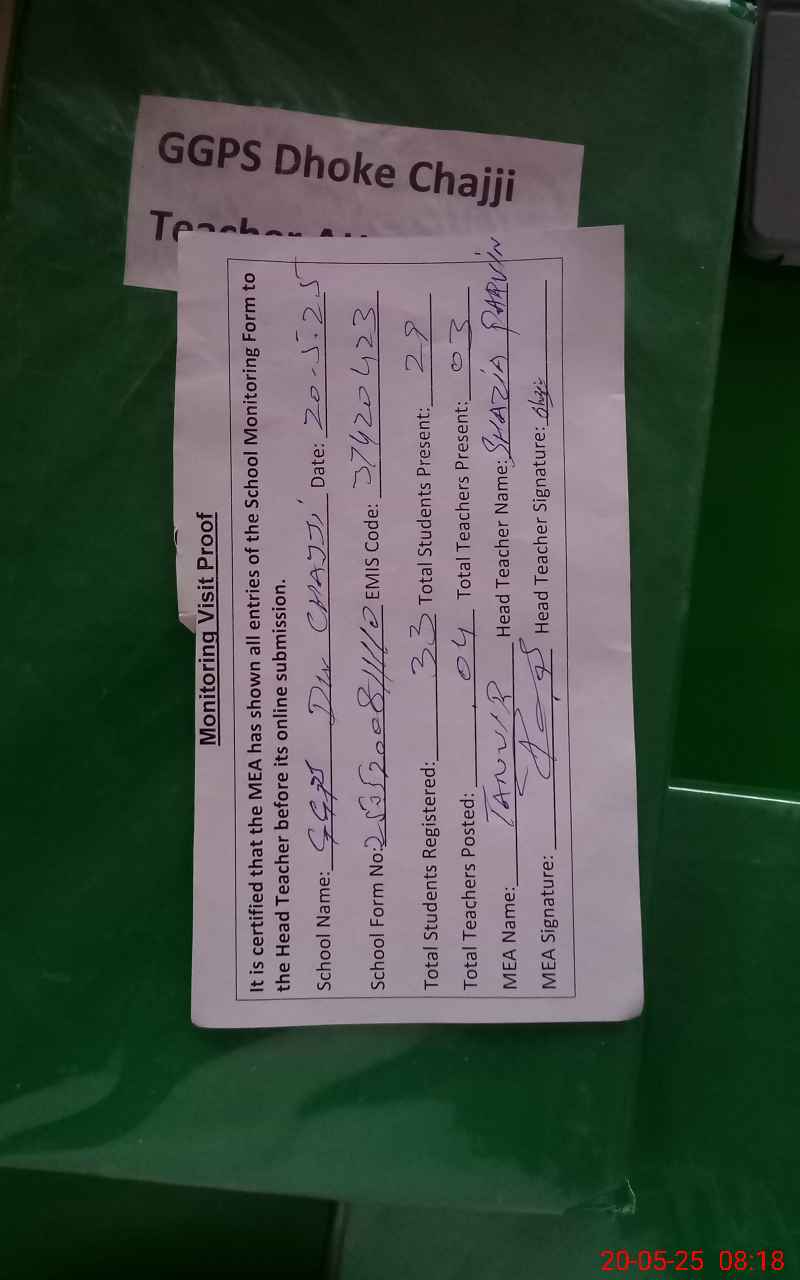 GGPS Dhoke Chajji
Teacher
Monitoring Visit Proof
It is certified that the MEA has shown all entries of the School Monitoring Form to
the Head Teacher before its online submission.
School Name: GGPS DW CHAJJI Date: 20-5.25
School Form No: EMIS Code: 37420423
Total Students Registered: 33 Total Students Present: 29
Total Teachers Posted: 04 Total Teachers Present: 03
MEA Name: TANVIR Head Teacher Name: SHAZIA PARVIN
MEA Signature: Head Teacher Signature:
20-05-25 08:18